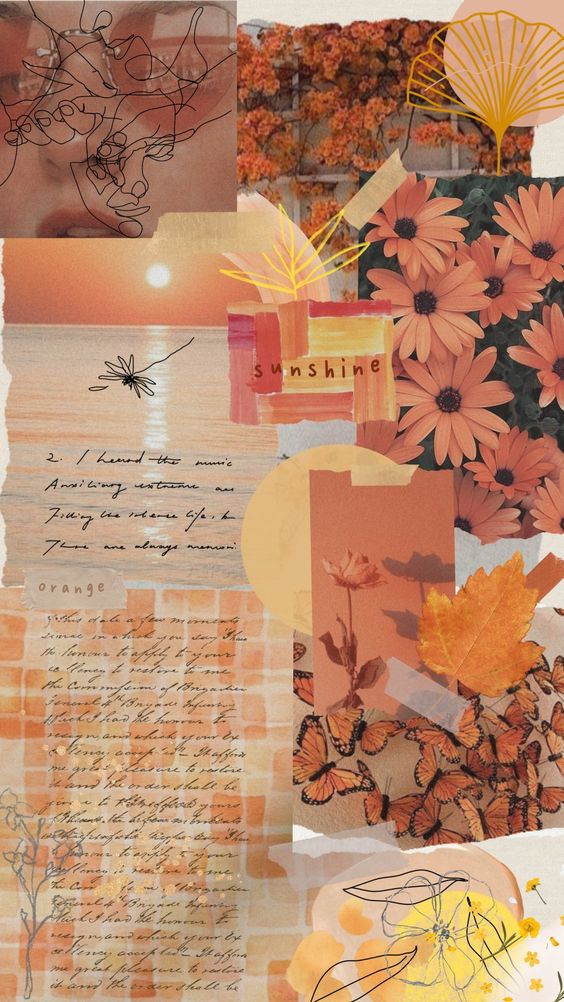 sunshine
2. I heard the music
extreme
Filling the intense life,
There are always memori
orange
this date a few moments
since in which you say I have
the honour to apply to your
Ex cellency to restore to me
the Commission of Brigadier
General 4th Brigade Infantry
Which I had the honour to
resign and which your Ex
cellency accepted It affords
me great pleasure to restore
it and the order shall be
yours
few moments
say I have
honour to apply to your
to restore to me
the Com of Brigadier
General 4th Brigade Infantry
Which I had the honour to
resign and which your Ex
cellency accepted It affords
me great pleasure to restore
it and the order shall be